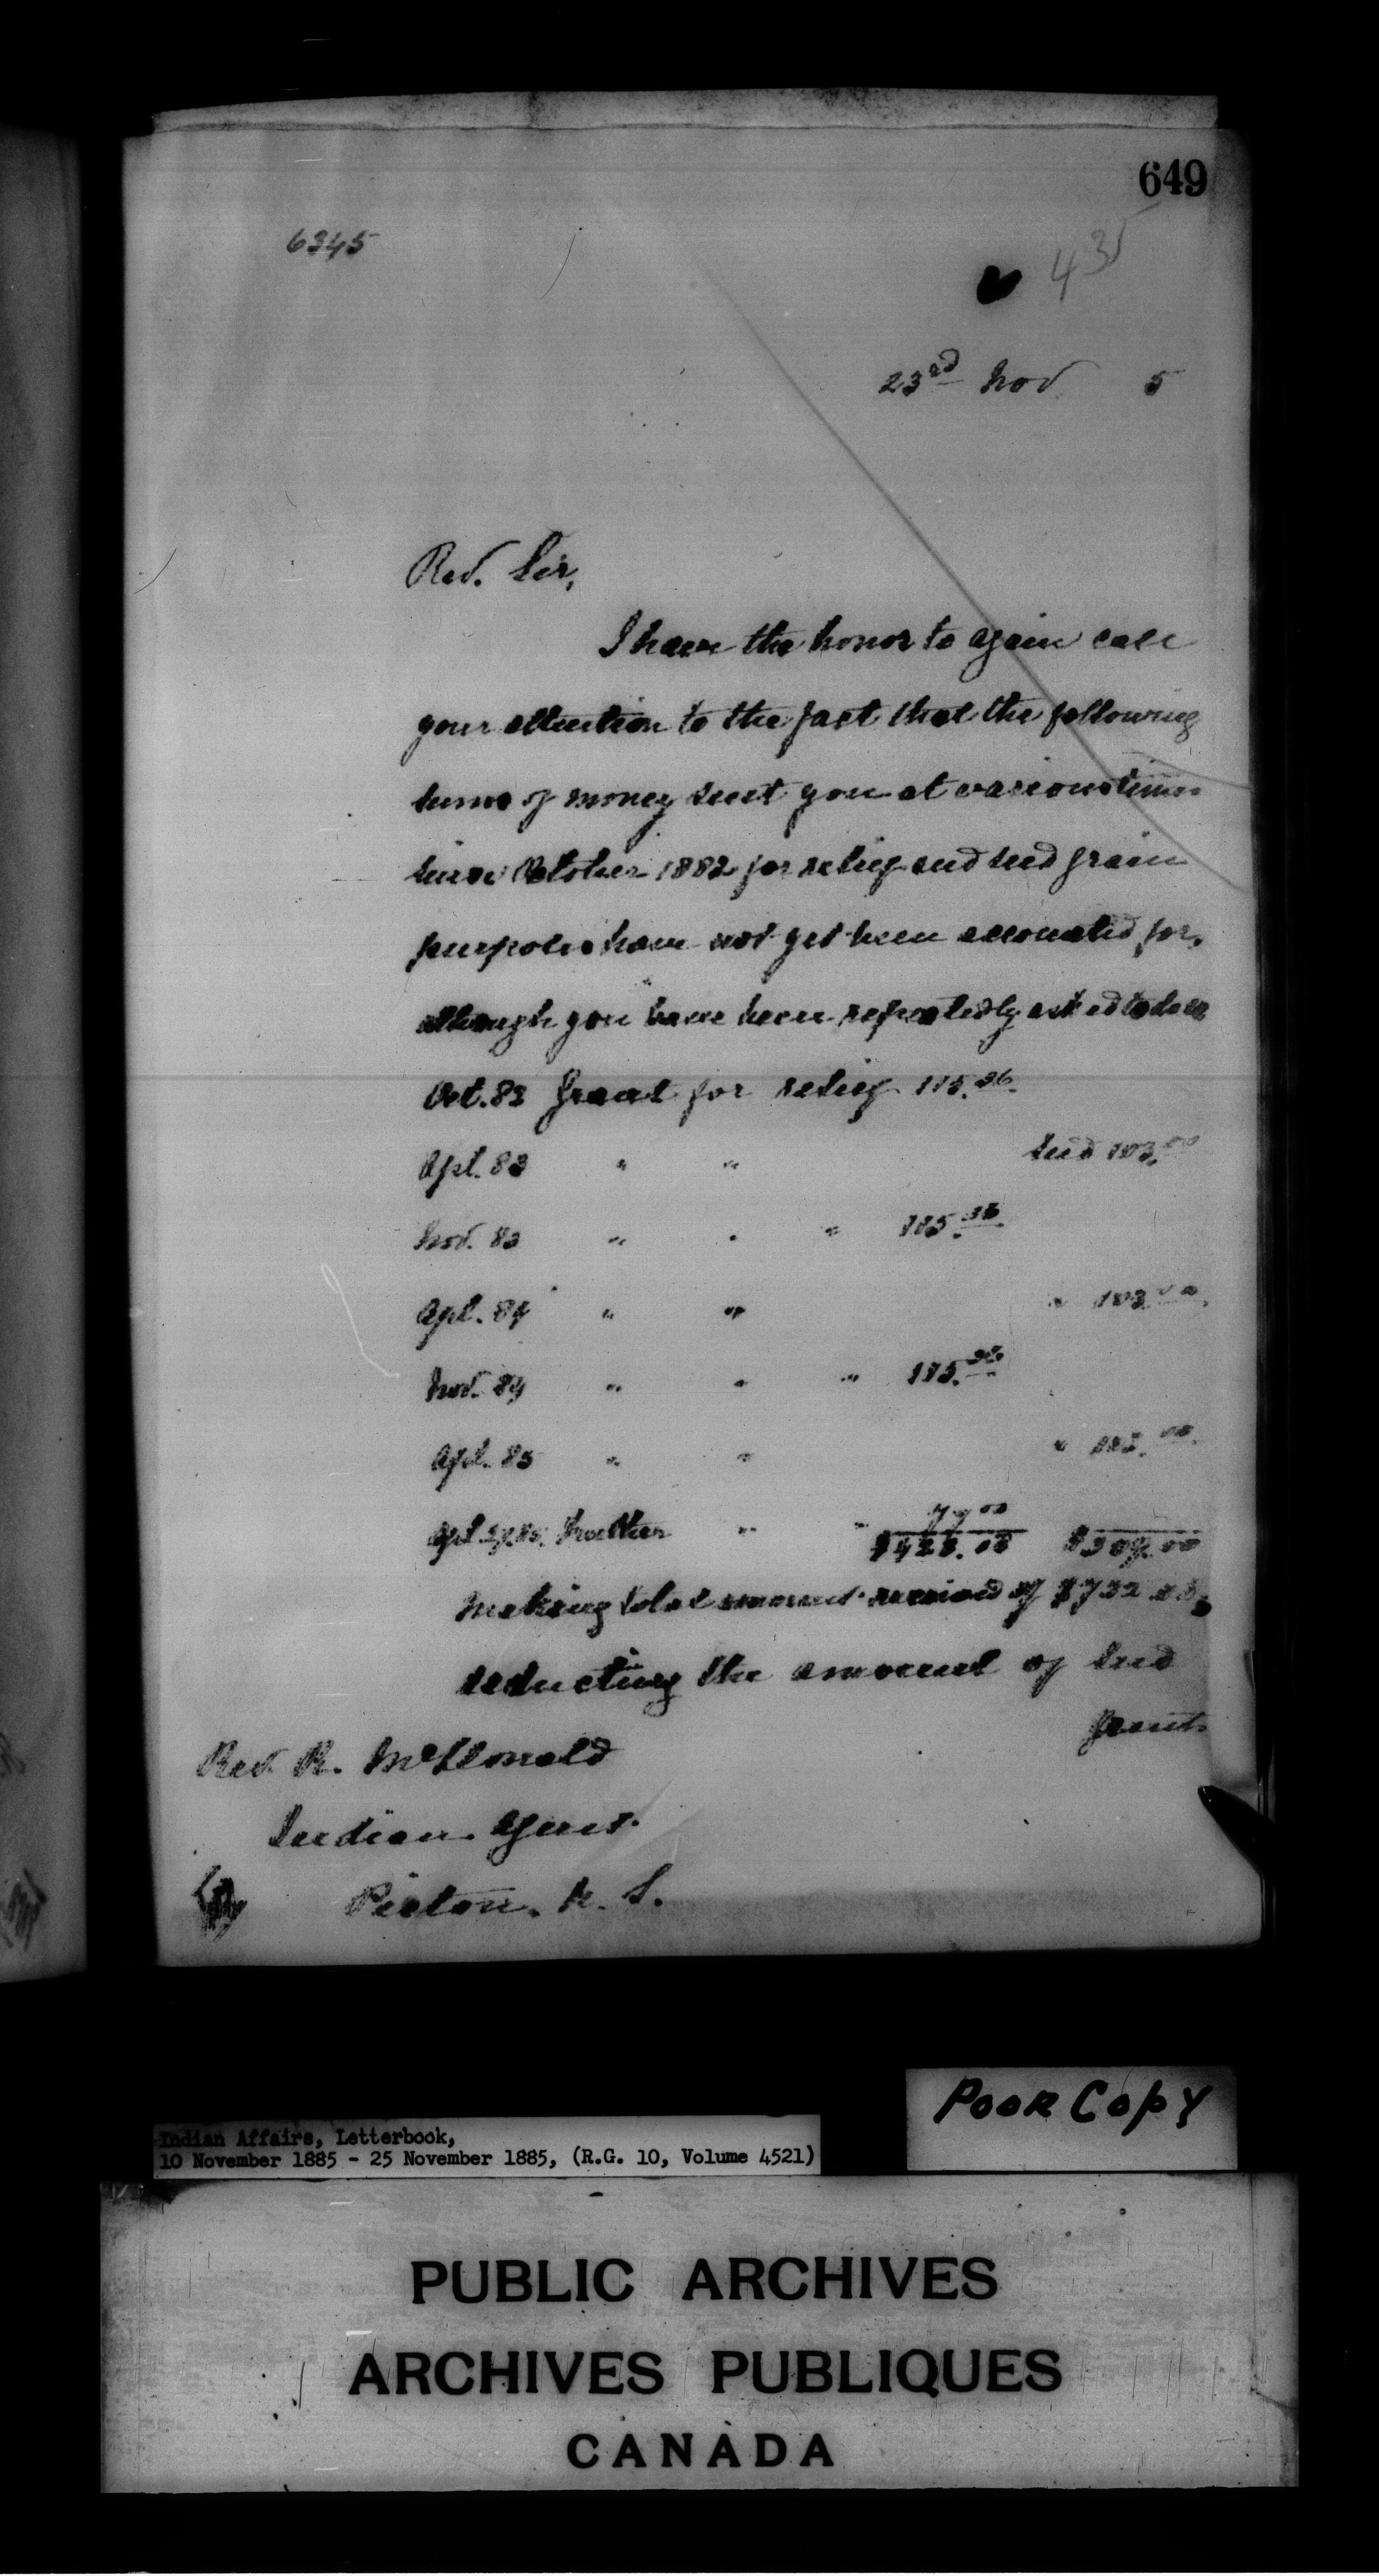 649
6345
435
23rd Nov 5
Rev. Sir,
I have the honor to again call
your attention to the fact that the following
sums of money sent you at various times
since October 1882 for relief and seed grain
purposes have not yet been accounted for,
although you have been repeatedly asked to do so
Oct. 82 Grant for relief 115.36
Apl. 83 " " Seed 103.00
Nov. 83 " " " 115.36
Apl. 84 " " " 103.00
Nov. 84 " " " 115.36
Apl. 85 " " " 103.00
Apl. 85. further " " 77.00
$423.08 $309.00
Making total amount received of $732.08,
deducting the amount of seed
grant
Rev. R. McDonald
Indian Agent.
Pictou. N. S.
Poor Copy
Indian Affairs, Letterbook,
10 November 1885 - 25 November 1885, (R.G. 10, Volume 4521)
PUBLIC ARCHIVES
ARCHIVES PUBLIQUES
CANADA